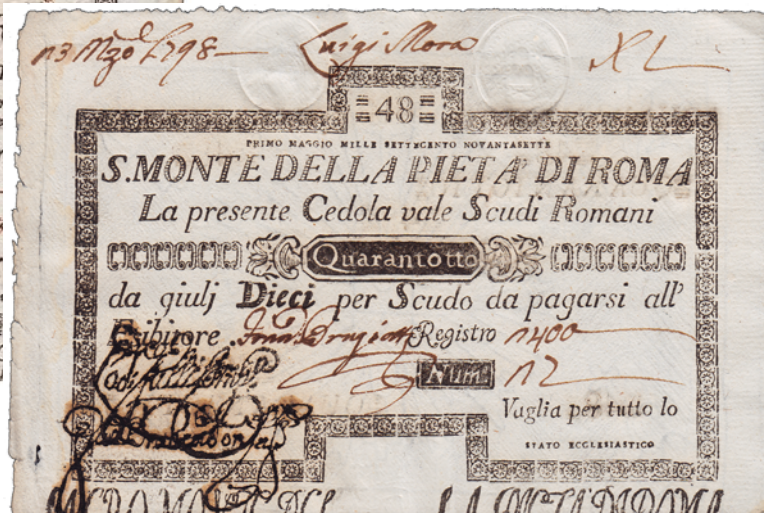 Luigi Mora XL
48
PRIMO MAGGIO MILLE SETTECENTO NOVANTASETTE
S. MONTE DELLA PIETA' DI ROMA
La presente Cedola vale Scudi Romani
Quarantotto
da giulj Dieci per Scudo da pagarsi all'
Esibitore Registro 1400
Num. 12
Vaglia per tutto lo
STATO ECCLESIASTICO